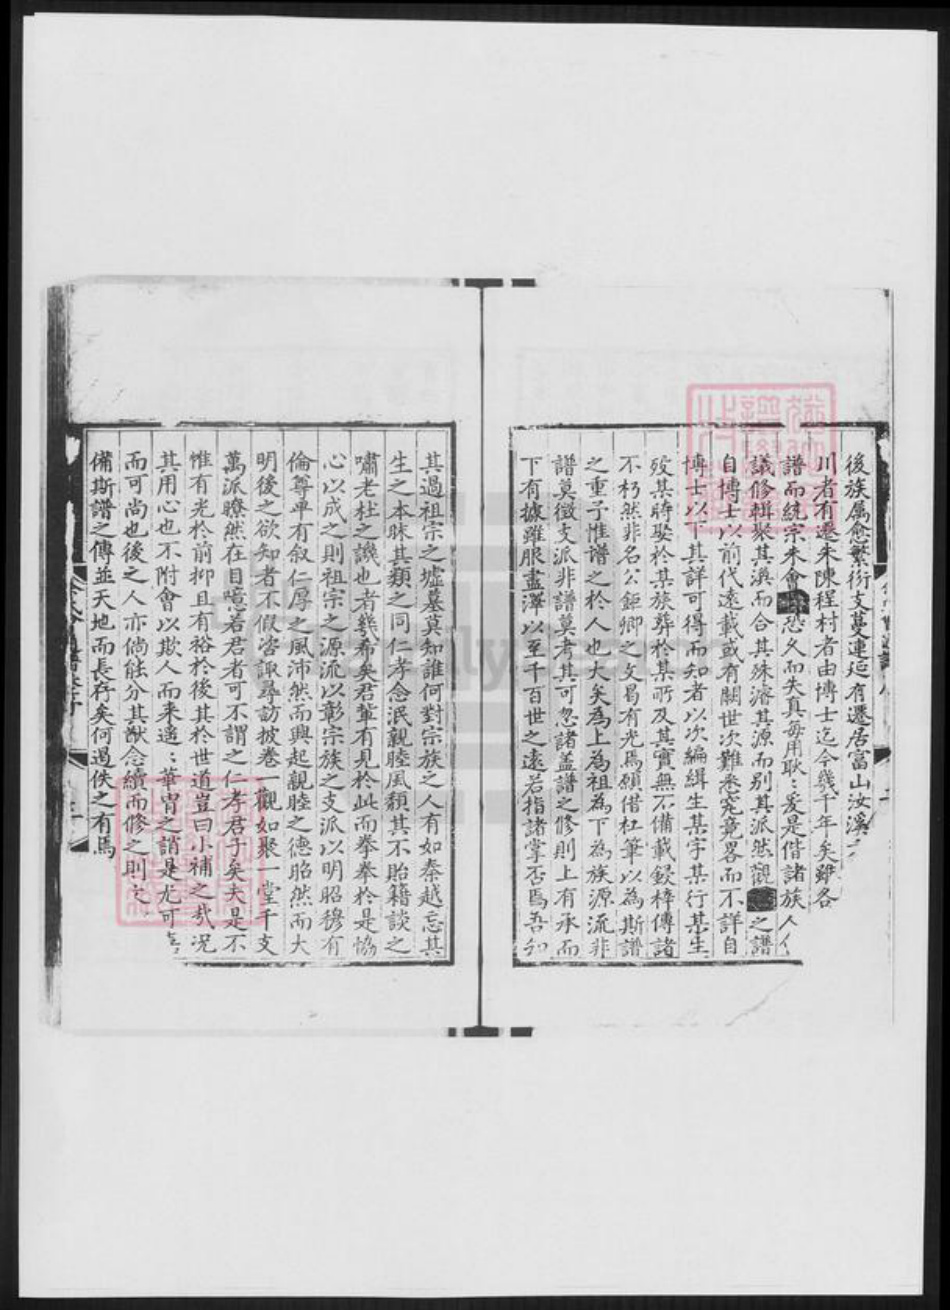 後族属愈繁衍支蔓連延有遷居富山汝溪
川者有遷朱陳程村者由博士迄今幾千年矣雖各
譜而統宗未會恐久而失真每用耿〻爰是偕諸族人
議修輯聚其渙而合其殊濬其源而别其派然之譜
自博士以前代遠載或有闕世次難悉究竟畧而不詳自
博士以下其詳可得而知者以次編緝生某字某行某生
殁某時娶於某族葬於某所及其實無不備載鋟梓傳諸
不朽然非名公鉅卿之文曷有光焉願借杠筆以為斯譜
之重予惟譜之於人也大矣為上為祖為下為族源流非
譜莫徴支派非譜莫考其可忽諸盖譜之修則上有承而
下有據雖服盡澤以至千百世之遠若指諸掌否焉吾知
其過祖宗之墟墓莫知誰何對宗族之人有如秦越忘其
生之本昧其類之同仁孝念泯親睦風頽其不貽籍談之
嘯老杜之譏也者幾希矣君輩有見於此而拳拳於是恊
心以成之則祖宗之源流以彰宗族之支派以明昭穆有
倫尊卑有叙仁厚之風沛然而興起親睦之德昭然而大
明後之欲知者不假咨諏尋訪披卷一觀如聚一堂千支
萬派瞭然在目噫若君者可不謂之仁孝君子矣夫是不
惟有光於前抑且有裕於後其於世道豈曰小補之哉况
其用心也不附會以欺人而来遥〻華冑之誚是尤可
而可尚也後之人亦倘能分其猷念續而修之則
備斯譜之傳並天地而長存矣何過佚之有焉